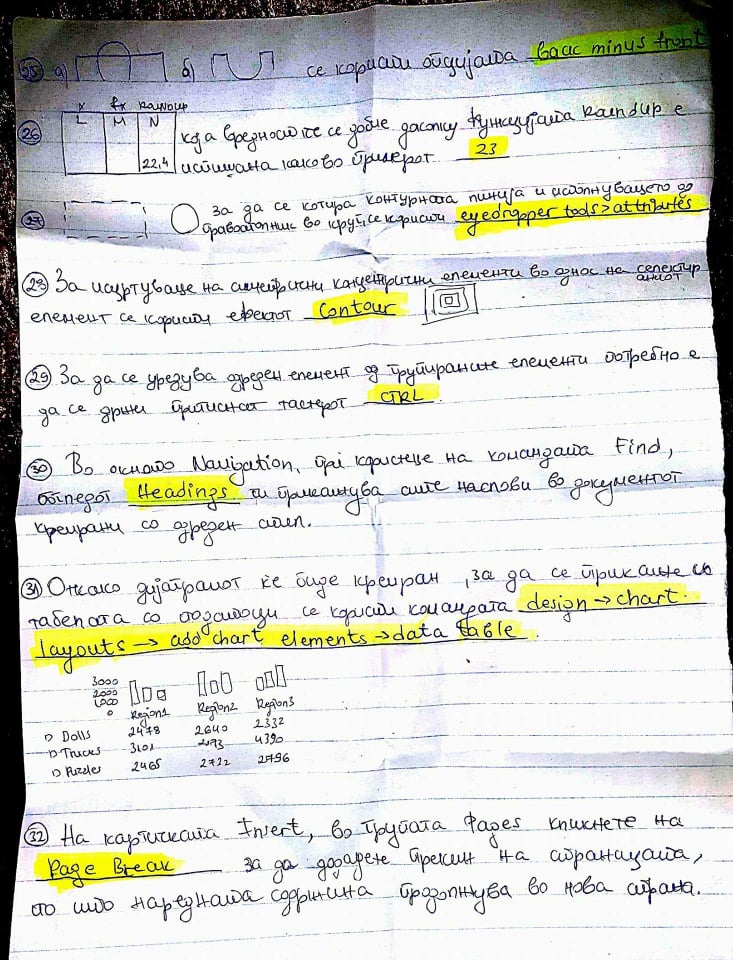 25 а) б) се користи опцијата back minus front
x fx Roundup
26 L M N која вредност ќе се добие доколку функцијата Roundup е
22,4 испишана како во примерот 23
27 За да се копира контурната линија и исполнувањето од
правоаголник во круг, се користи eyedropper tools > attributes
28 За исцртување на симетрични концентрични елементи во однос на селектираниот
елемент се користи ефектот Contour
29 За да се уредува одреден елемент од групираните елементи потребно е
да се држи притиснат тастерот CTRL.
30 Во окното Navigation, при користење на командата Find,
делот Headings ги прикажува сите наслови во документот
креирани со одреден стил.
31 Откако дијаграмот ќе биде креиран, за да се прикаже и
табелата со податоци се користи командата design → chart
layouts → add chart elements → data table.
3000
2000
1000
0 Region1 Region2 Region3
▷ Dolls 2478 2640 2332
▷ Trucks 3101 4390
▷ Puzzles 2465 2722 2796
32 На картичката Insert, во групата Pages кликнете на
Page Break за да додадете прекин на страницата,
со што наредната содржина продолжува во нова страна.